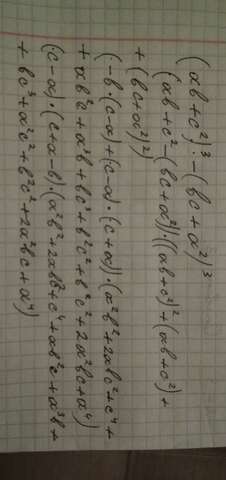 (ab+c²)³-(bc+a²)³
(ab+c²-(bc+a²))·((ab+c²)²+(ab+c²)+
+(bc+a²)²)
(-b·(c-a)+(c-a)·(c+a))·(a²b²+2abc²+c⁴+
+ab²c+a³b+bc³+b²c²+a²c²+2a²bc+a⁴)
(c-a)·(c+a-b)·(a²b²+2abc²+c⁴+ab²c+a³b+
+bc³+a²c²+b²c²+2a²bc+a⁴)